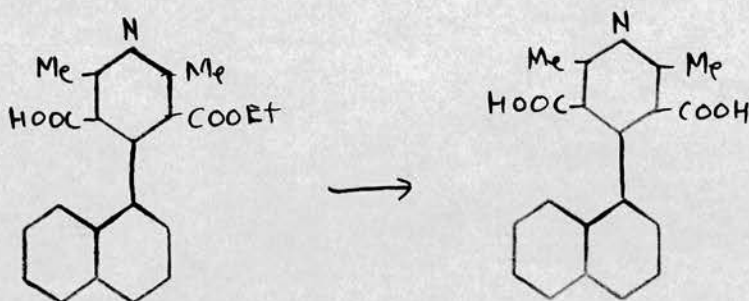 N
Me Me
HOOC COOEt
N
Me Me
HOOC COOH